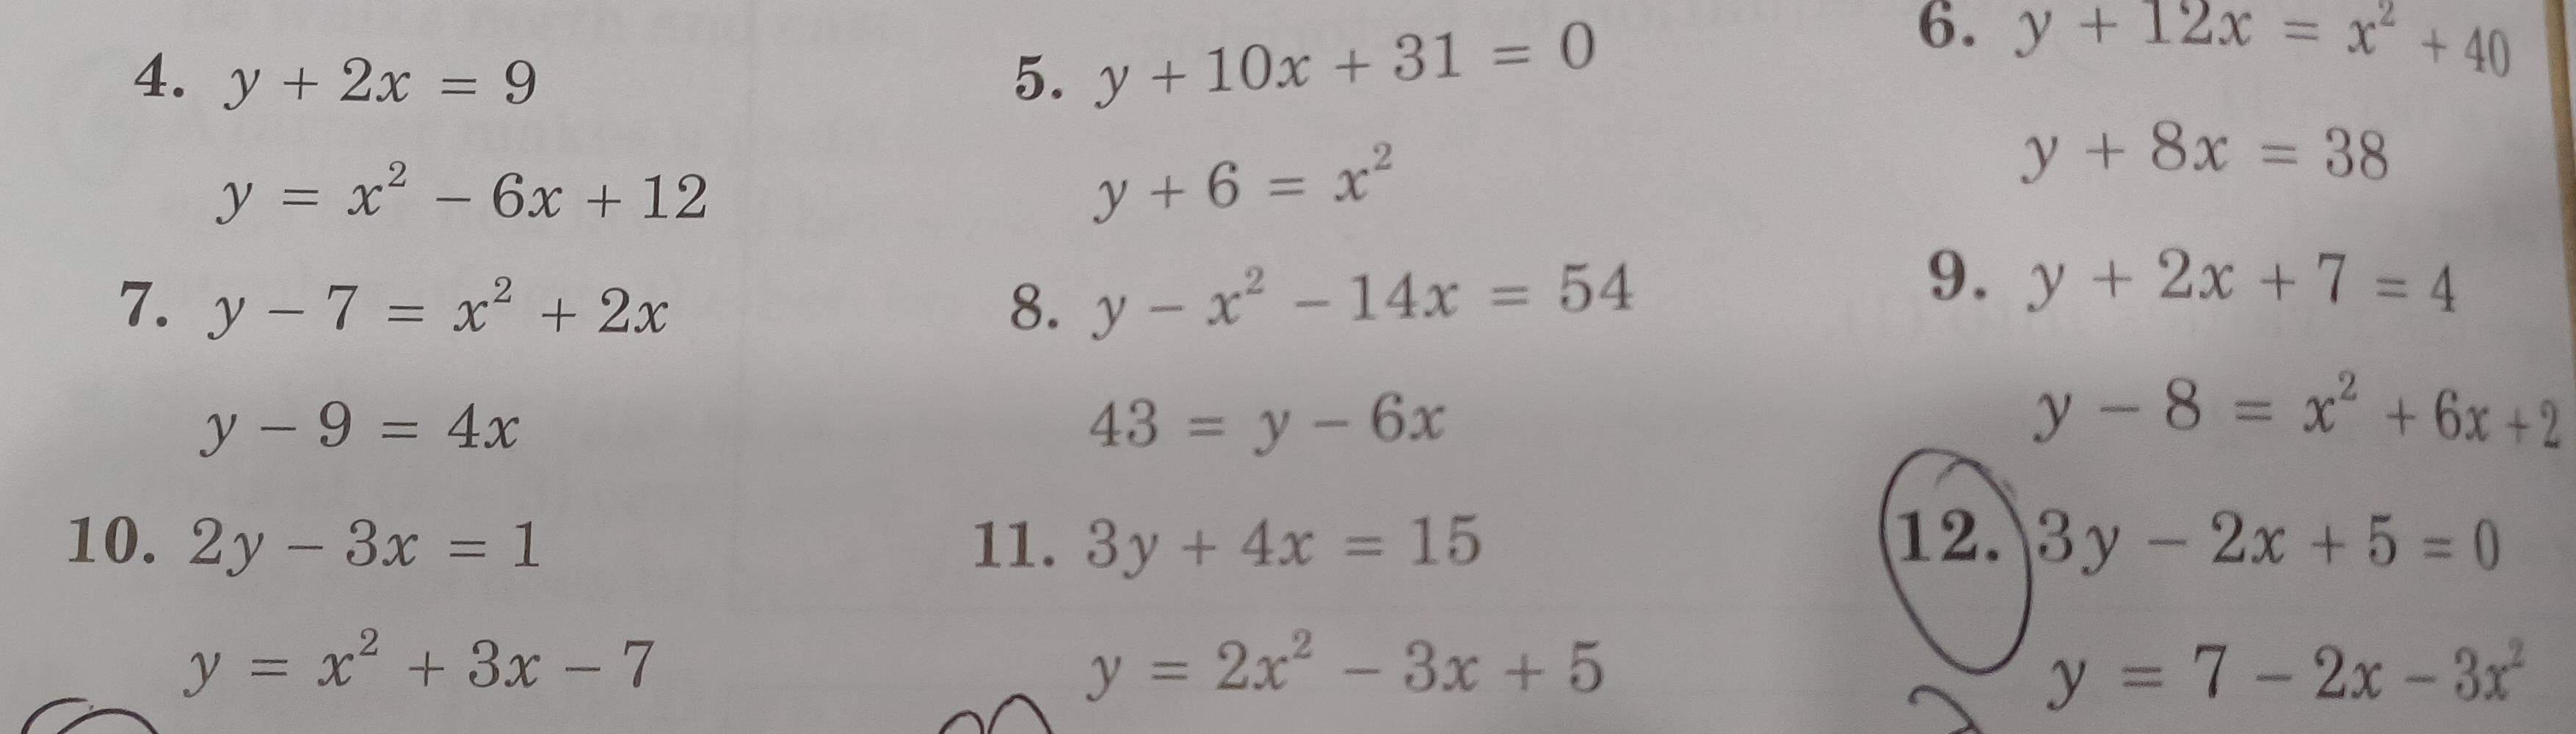 4. y + 2x = 9
y = x² − 6x + 12
5. y + 10x + 31 = 0
y + 6 = x²
6. y + 12x = x² + 40
y + 8x = 38
7. y − 7 = x² + 2x
y − 9 = 4x
8. y − x² − 14x = 54
43 = y − 6x
9. y + 2x + 7 = 4
y − 8 = x² + 6x + 2
10. 2y − 3x = 1
y = x² + 3x − 7
11. 3y + 4x = 15
y = 2x² − 3x + 5
12. 3y − 2x + 5 = 0
y = 7 − 2x − 3x²